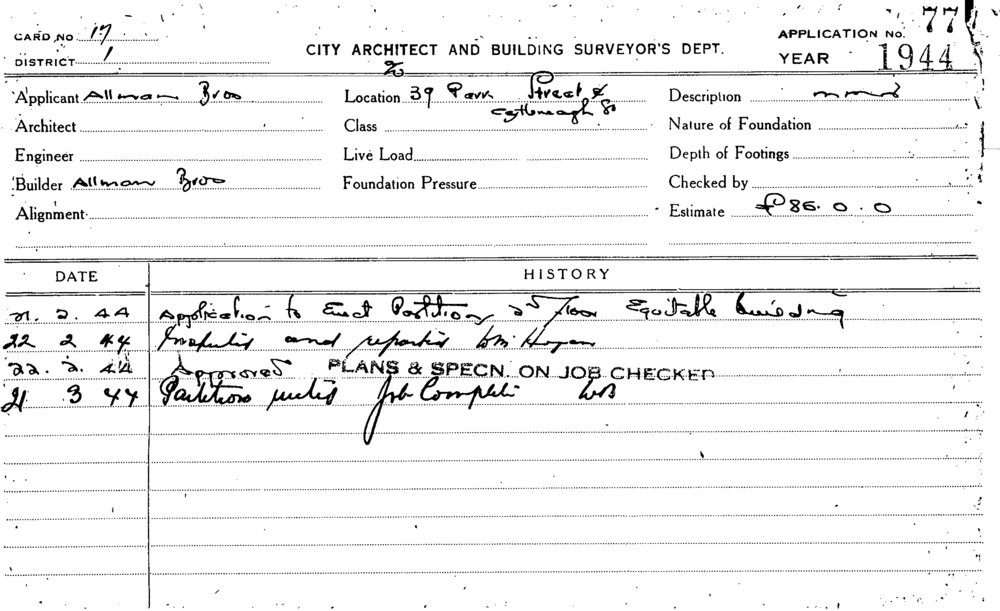 CARD No 17
DISTRICT 1
CITY ARCHITECT AND BUILDING SURVEYOR'S DEPT.
APPLICATION No. 77
YEAR 1944
Applicant Allman Bros
Location 39 Park Street & Castlereagh St
Description
Architect
Class
Nature of Foundation
Engineer
Live Load
Depth of Footings
Builder Allman Bros
Foundation Pressure
Checked by
Alignment
Estimate £86.0.0
DATE HISTORY
21. 2. 44 Application to Erect Partitions 2nd Floor Equitable Building
22 2 44 Inspected and reported Hogan
22. 2. 44 Approved PLANS & SPECN. ON JOB CHECKED
21 3 44 Partitions erected Job Complete